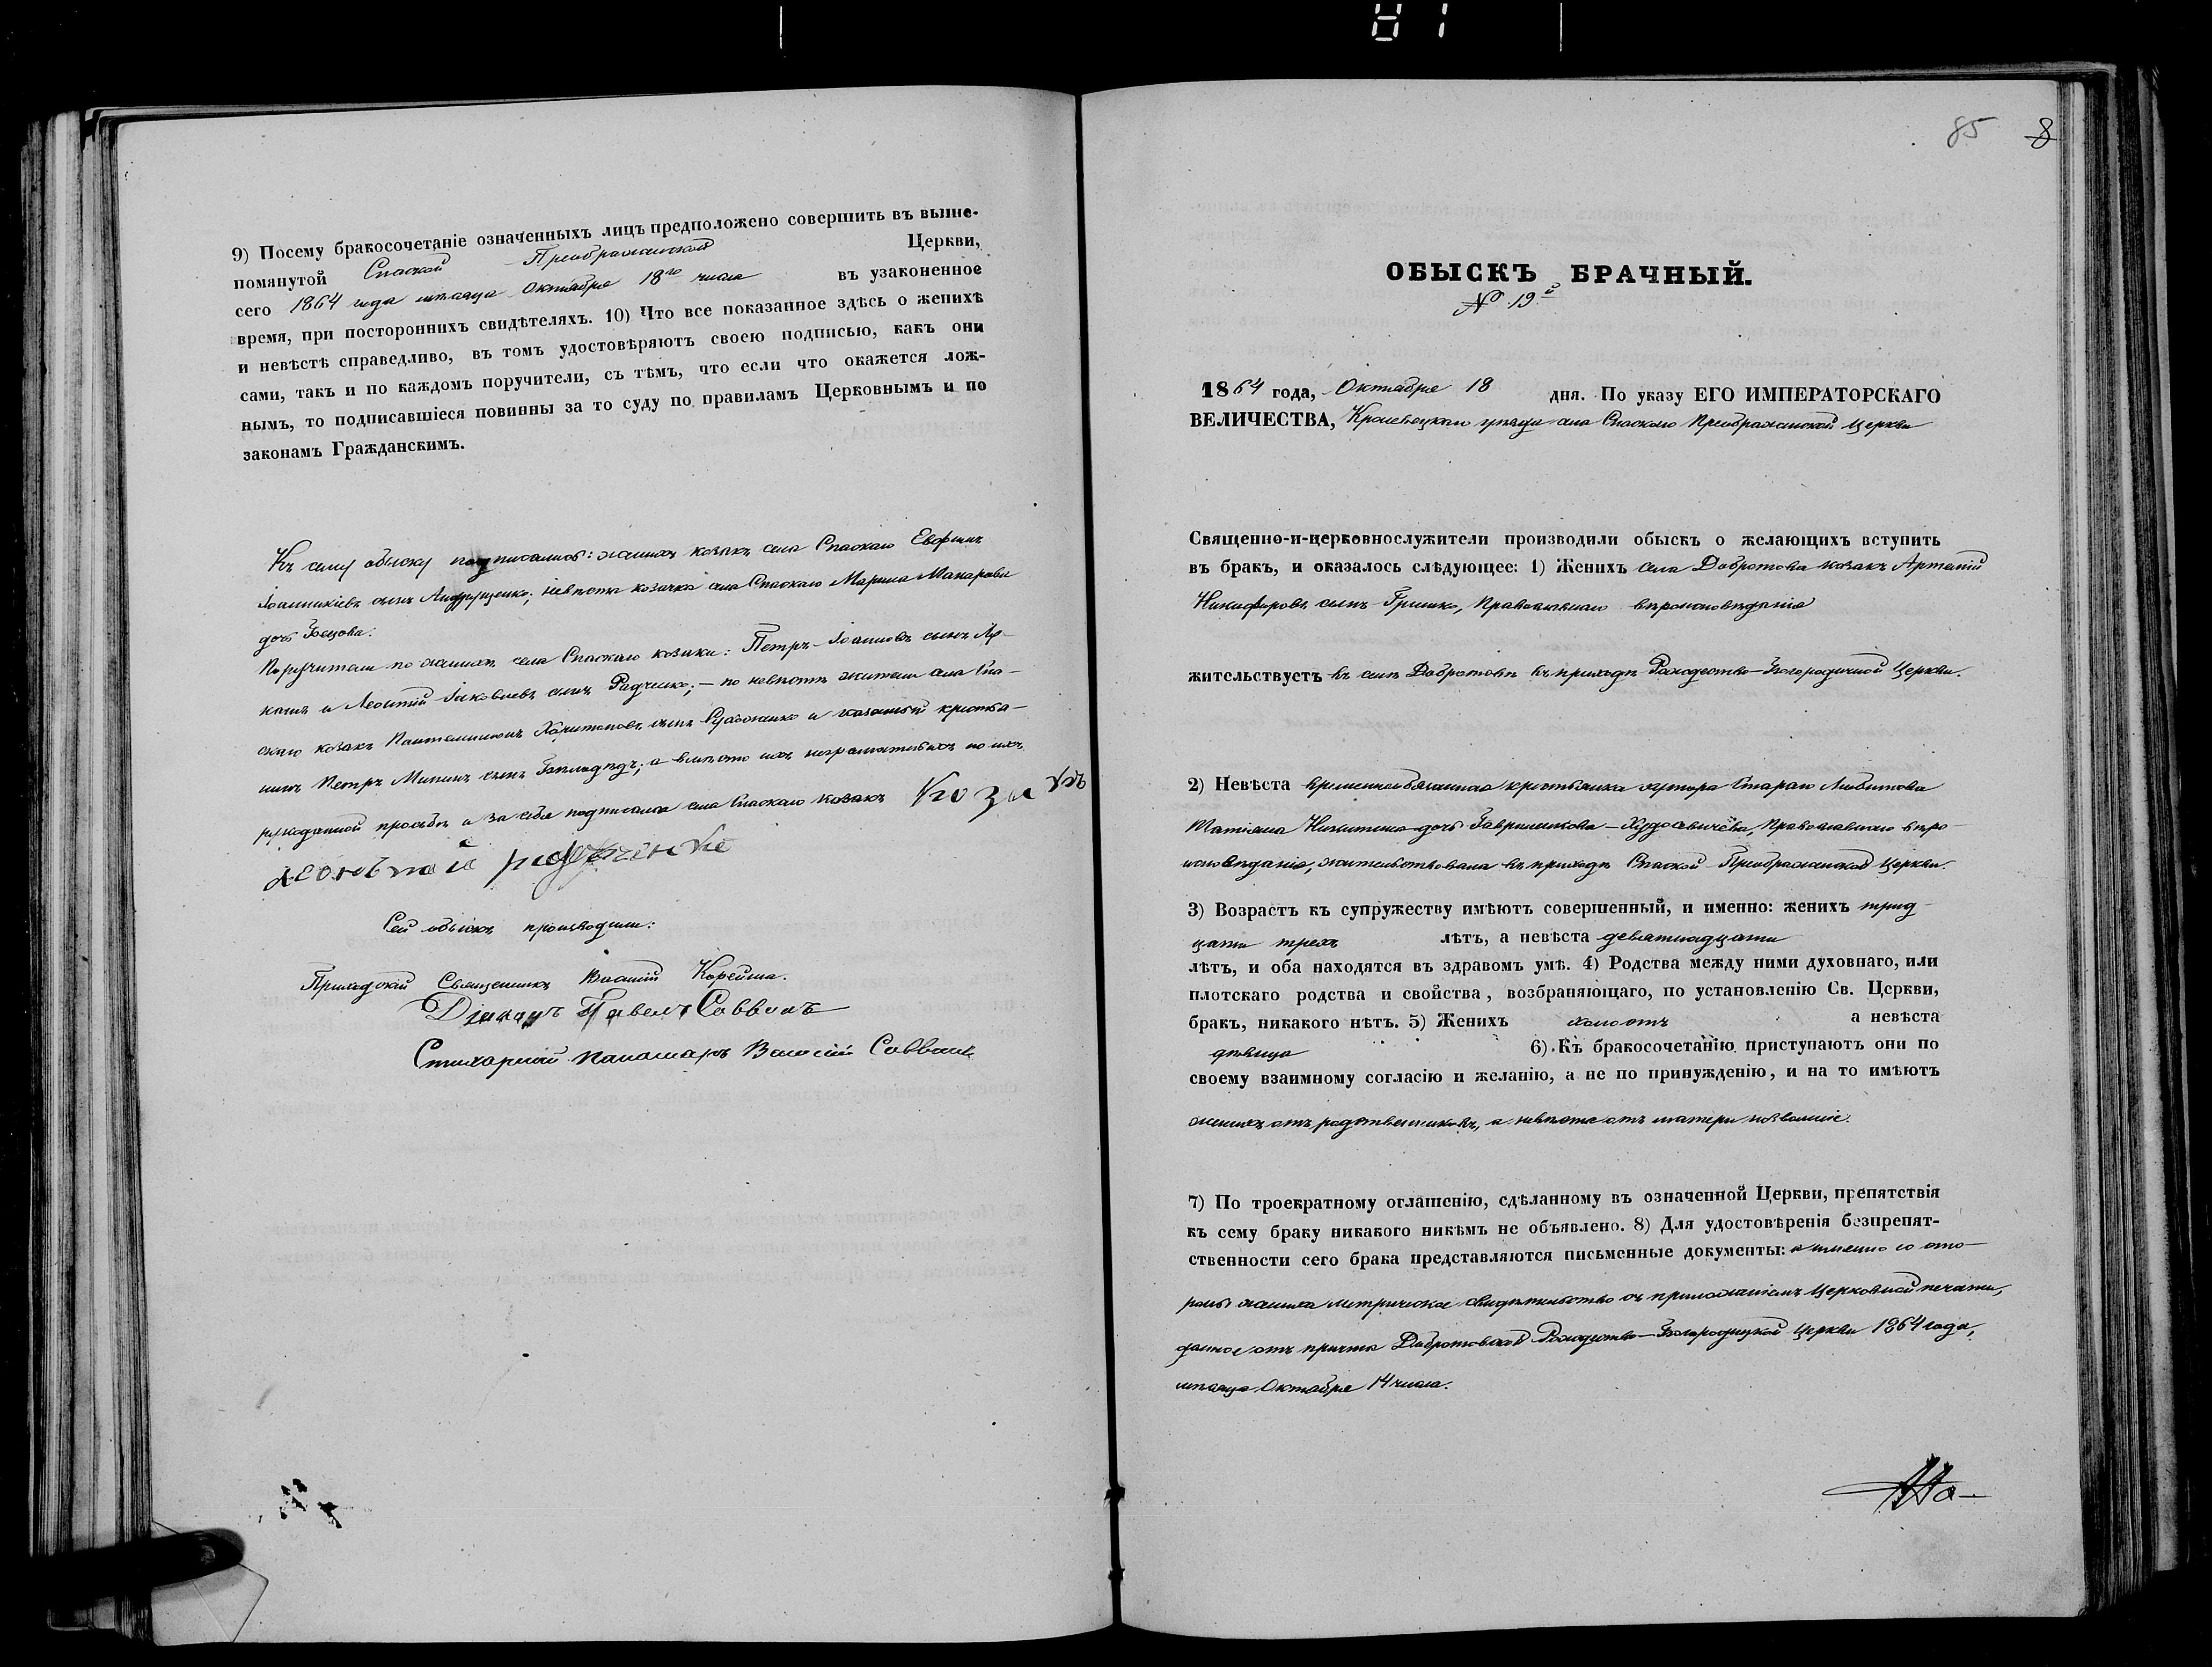 9) Посему бракосочетаніе означенныхъ лицъ предположено совершить въ выше-
помянутой Спаской Преображенской Церкви,
сего 1864 года мѣсяца Октября 18го числа въ узаконенное
время, при постороннихъ свидѣтеляхъ. 10) Что все показанное здѣсь о женихѣ
и невѣстѣ справедливо, въ томъ удостовѣряютъ своею подписью, какъ они
сами, такъ и по каждомъ поручители, съ тѣмъ, что если что окажется лож-
нымъ, то подписавшіеся повинны за то суду по правиламъ Церковнымъ и по
законамъ Гражданскимъ.
Къ сему обыску подписались: женихъ козакъ села Спаскаго Евфимъ
Іоанникіевъ сынъ Андрущенко; невѣста козачка села Спаскаго Марина Макарова
дочь
Поручители по женихѣ села Спаскаго козаки: Петръ Іоанновъ сынъ
и Леонтій Іаковлевъ сынъ Радченко; — по невѣстѣ жители села Спа-
скаго козакъ Пантелимонъ Харитоновъ сынъ и казенный крестья-
нинъ Петръ Мининъ сынъ а вмѣсто ихъ неграмотныхъ по ихъ
рукоданной прозьбѣ и за себя подписался села Спаскаго козакъ Козакъ
леонътий радченко
Сей обыскъ производили:
Приходскій Священникъ Василій Корейша.
Діаконъ Павелъ Саввонъ
Стихарный Паномарь Василій Саввонъ
85 8
ОБЫСКЪ БРАЧНЫЙ.
№ 19й
1864 года, Октября 18 дня. По указу ЕГО ИМПЕРАТОРСКАГО
ВЕЛИЧЕСТВА, Кролевецкаго уѣзда села Спаскаго Преображенской Церкви
Священно-и-церковнослужители производили обыскъ о желающихъ вступить
въ бракъ, и оказалось слѣдующее: 1) Женихъ села Добротова козакъ Артемій
Никифоровъ сынъ Гришко, Православнаго вѣроисповѣданія
жительствуетъ въ селѣ Добротовѣ въ приходѣ Рождество-Богородичной Церкви.
2) Невѣста временнообязанная крестьянка хутора Стараго Любитова
Татіана Никитина дочь Гавриленкова-Худосвичева, Православнаго вѣро-
исповѣданія, жительствовала въ приходѣ Спаской Преображенской Церкви.
3) Возрастъ къ супружеству имѣютъ совершенный, и именно: женихъ трид-
цати трехъ лѣтъ, а невѣста девятнадцати
лѣтъ, и оба находятся въ здравомъ умѣ. 4) Родства между ними духовнаго, или
плотскаго родства и свойства, возбраняющаго, по установленію Св. Церкви,
бракъ, никакого нѣтъ. 5) Женихъ холостъ а невѣста
дѣвица 6) Къ бракосочетанію приступаютъ они по
своему взаимному согласію и желанію, а не по принужденію, и на то имѣютъ
женихъ отъ родственниковъ, а невѣста отъ матери позволеніе.
7) По троекратному оглашенію, сдѣланному въ означенной Церкви, препятствія
къ сему браку никакого никѣмъ не объявлено. 8) Для удостовѣренія безпрепят-
ственности сего брака представляются письменные документы: а именно со сто-
роны жениха метрическое свидѣтельство съ приложеніемъ Церковной печати,
данное отъ причта Добротовской Рождество-Богородицкой Церкви 1864 года,
мѣсяца Октября 14 числа.